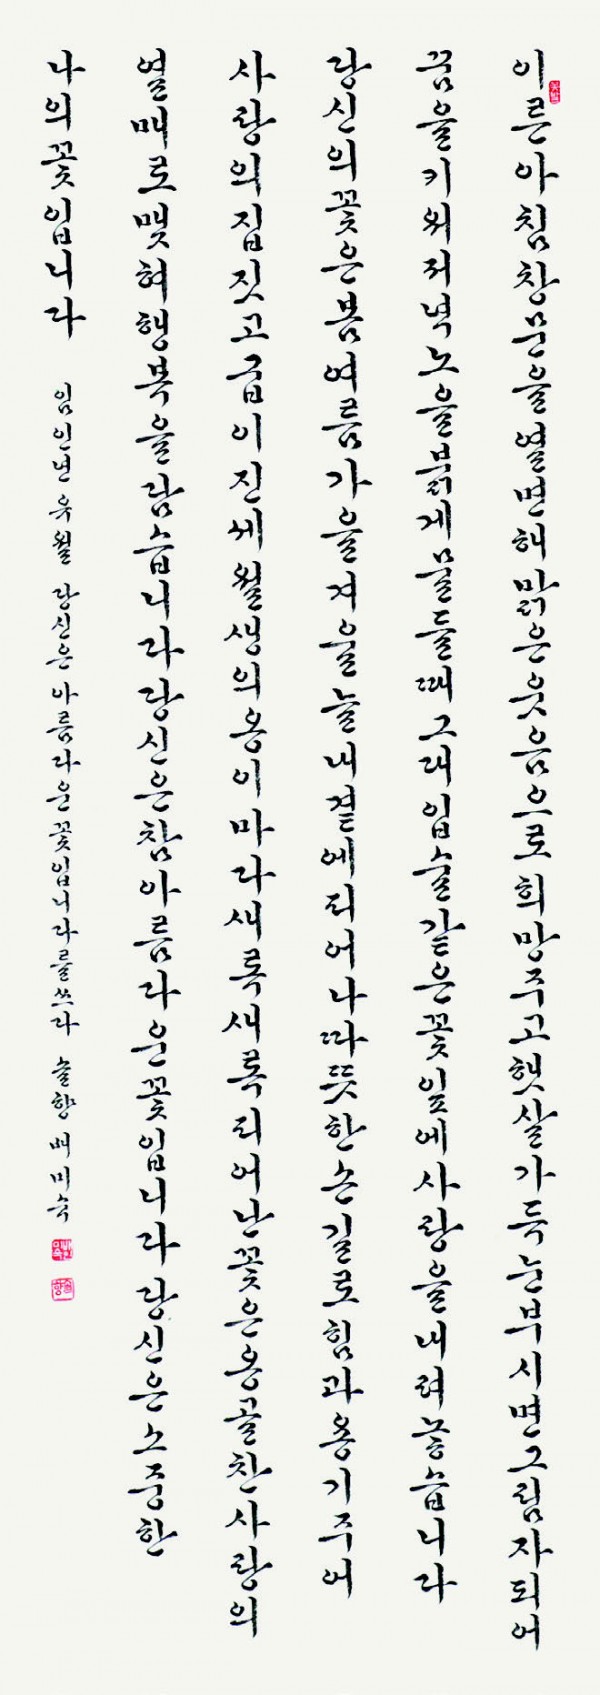 이른아침창문을열면해맑은웃음으로희망주고햇살가득눈부시면그림자되어
꿈을키워저녁노을붉게물들때그대입술같은꽃잎에사랑을내려놓습니다
당신의꽃은봄여름가을겨울늘내곁에피어나따뜻한손길로힘과용기주어
사랑의집짓고굽이진세월생의옹이마다새록새록피어난꽃은옹골찬사랑의
열매로맺혀행복을담습니다당신은참아름다운꽃입니다당신은소중한
나의꽃입니다
임인년유월 당신은아름다운꽃입니다를쓰다 솔향배미숙